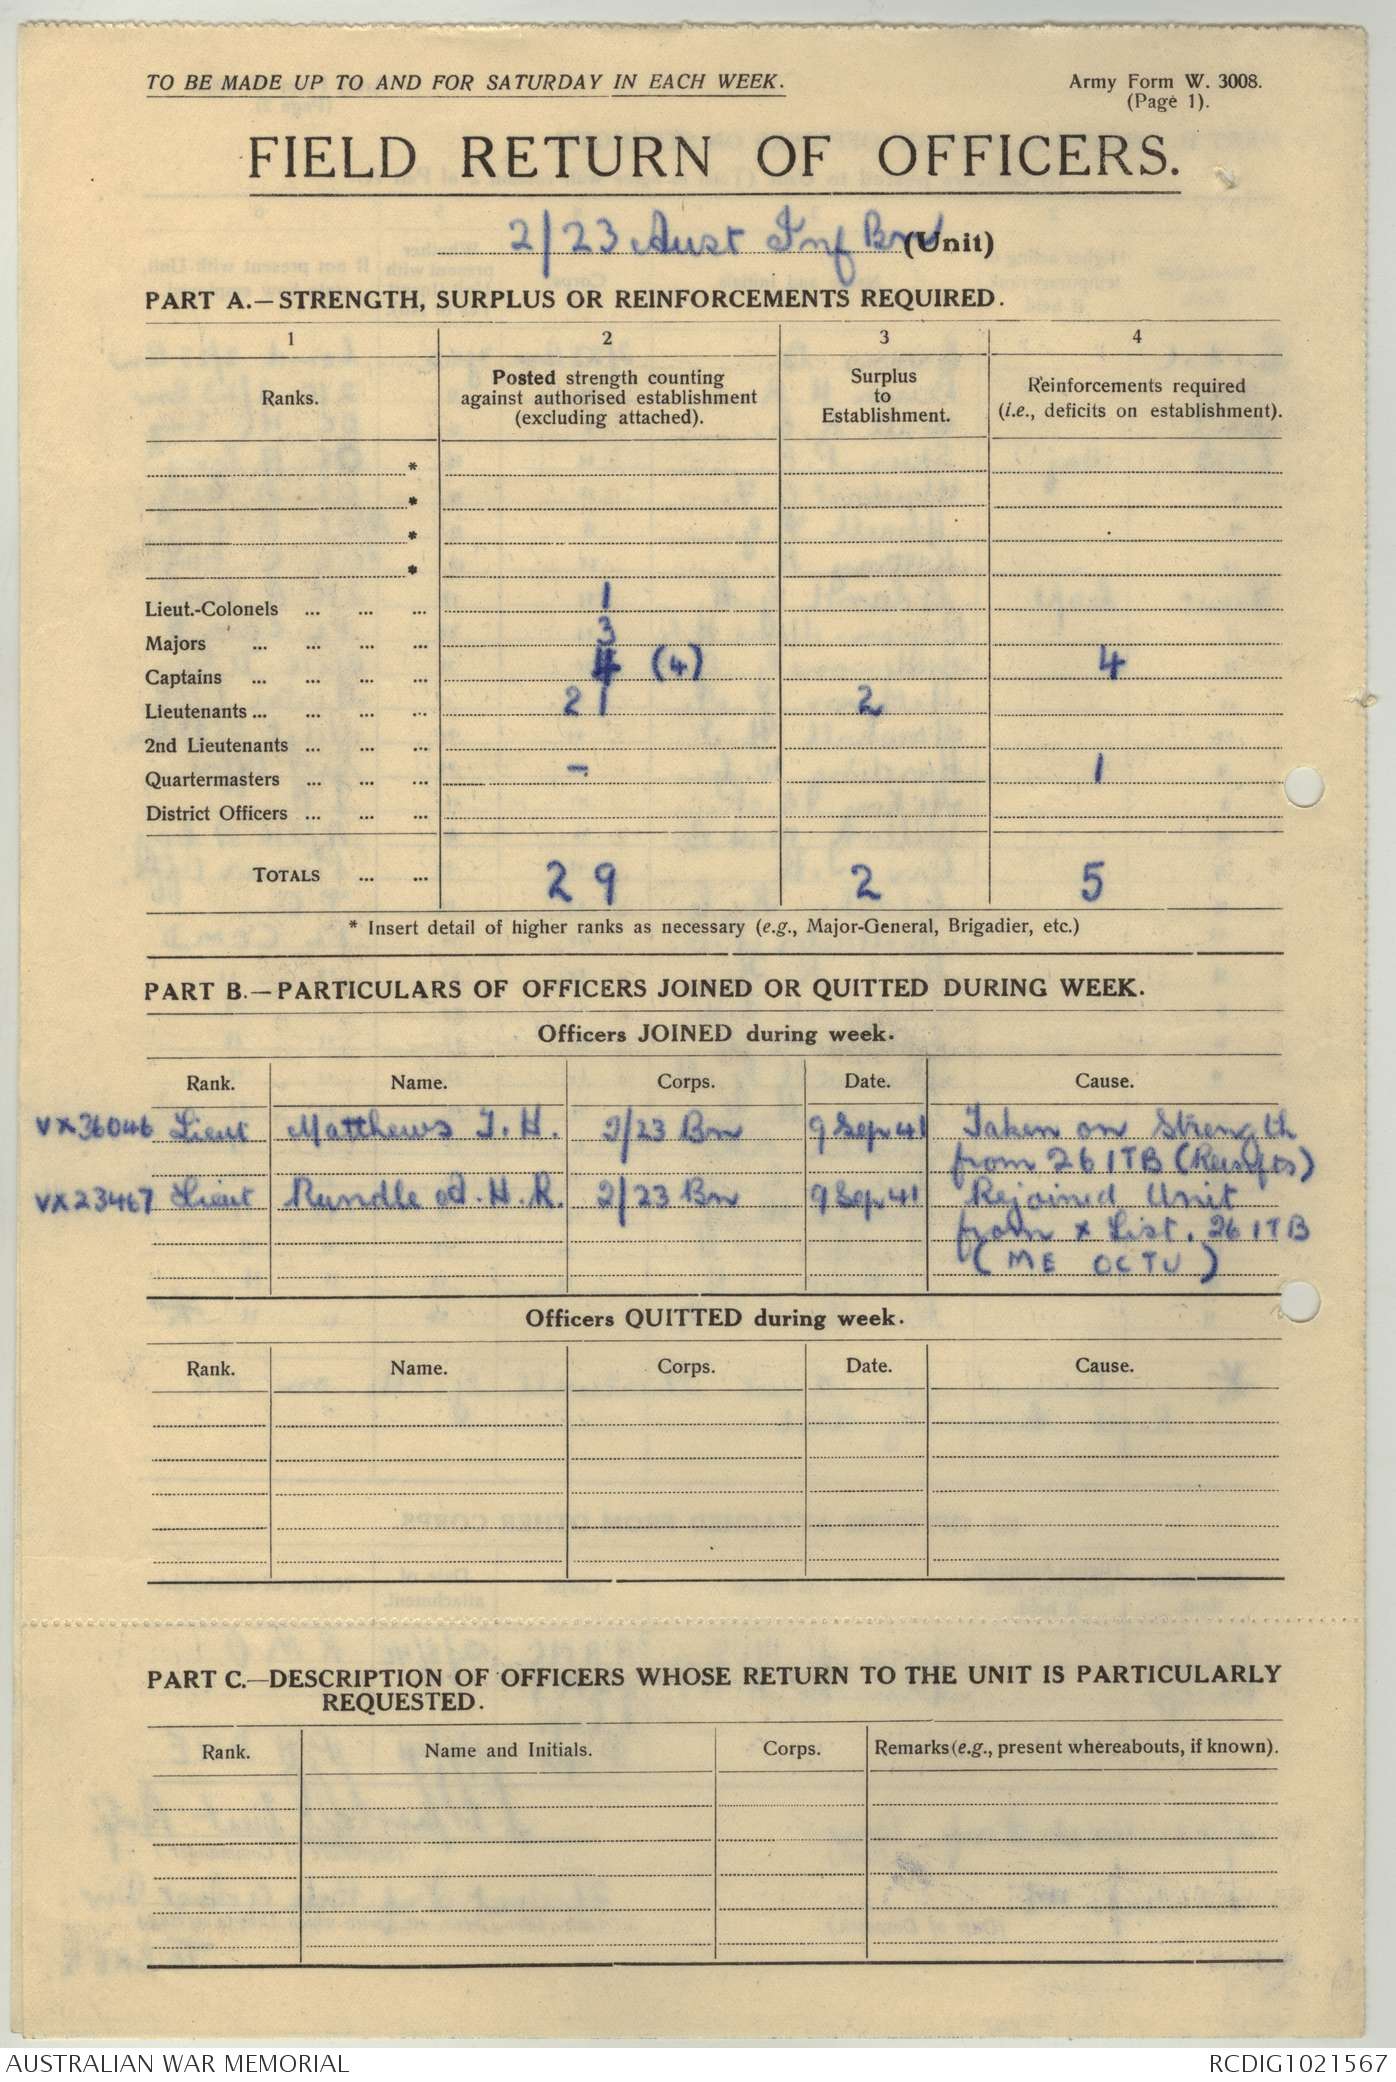 TO BE MADE UP TO AND FOR SATURDAY IN EACH WEEK.
Army Form W. 3008.
(Page 1).
FIELD RETURN OF OFFICERS.
2/23 Aust Inf Bn (Unit)
PART A.—STRENGTH, SURPLUS OR REINFORCEMENTS REQUIRED.
1 2 3 4
Ranks. Posted strength counting against authorised establishment (excluding attached). Surplus to Establishment. Reinforcements required (i.e., deficits on establishment).
*
*
*
*
Lieut.-Colonels ... ... ... 1
Majors ... ... ... ... 3
Captains ... ... ... ... 4 (4) 4
Lieutenants ... ... ... ... 21 2
2nd Lieutenants ... ... ... ...
Quartermasters ... ... ... - 1
District Officers ... ... ...
TOTALS ... ... 29 2 5
* Insert detail of higher ranks as necessary (e.g., Major-General, Brigadier, etc.)
PART B.—PARTICULARS OF OFFICERS JOINED OR QUITTED DURING WEEK.
Officers JOINED during week.
Rank. Name. Corps. Date. Cause.
VX36046 Lieut Matthews T. H. 2/23 Bn 9 Sep 41 Taken on Strength
from 26 ITB (Reinfts)
VX23467 Lieut Rundle A. H. R. 2/23 Bn 9 Sep 41 Rejoined Unit
from x List. 26 ITB
(ME OCTU)
Officers QUITTED during week.
Rank. Name. Corps. Date. Cause.
PART C.—DESCRIPTION OF OFFICERS WHOSE RETURN TO THE UNIT IS PARTICULARLY
REQUESTED.
Rank. Name and Initials. Corps. Remarks (e.g., present whereabouts, if known).
AUSTRALIAN WAR MEMORIAL
RCDIG1021567